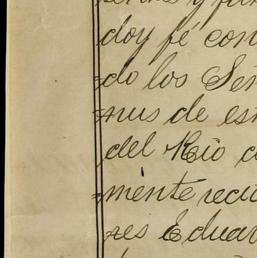 doy fé con
do los Señ
nus de es
del Rio c
mente veci
res Eduar